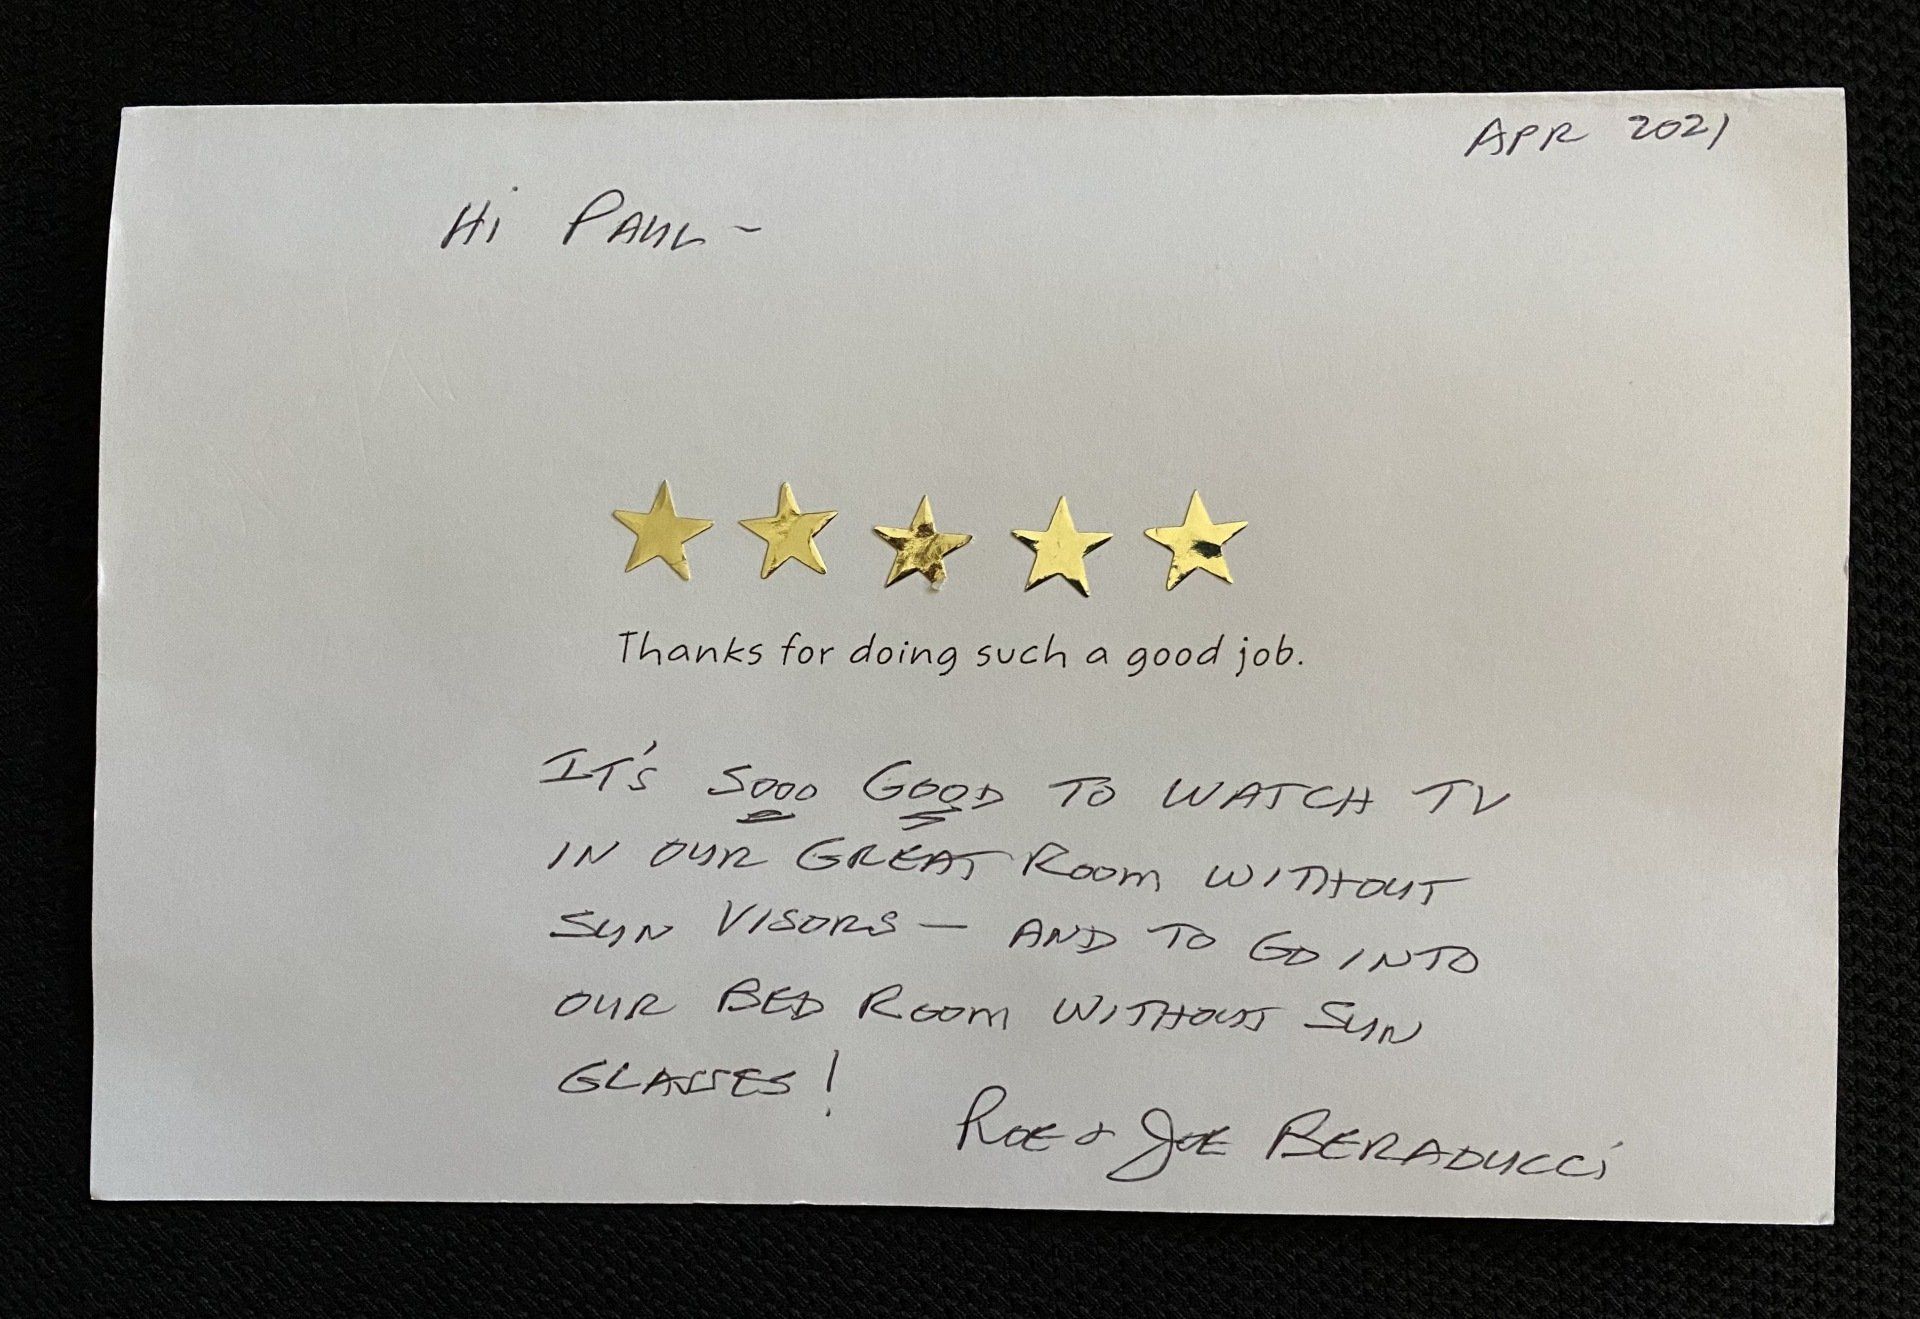 APR 2021
Hi PAUL -
Thanks for doing such a good job.
IT'S SOOO GOOD TO WATCH TV
IN OUR GREAT ROOM WITHOUT
SUN VISORS - AND TO GO INTO
OUR BED ROOM WITHOUT SUN
GLASSES!
ROE & JOE BERADUCCi